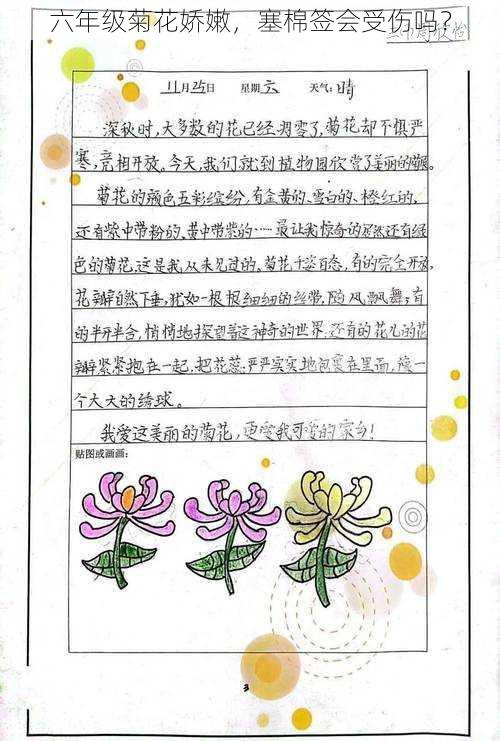 六年级菊花娇嫩，塞棉签会受伤吗？
11月25日 星期六 天气:晴
深秋时,大多数的花已经凋零了,菊花却不惧严
寒,竞相开放。今天,我们就到植物园欣赏了美丽的菊展。
菊花的颜色五彩缤纷,有金黄的、雪白的、橙红的,
还有紫中带粉的、黄中带紫的……最让我惊奇的居然还有绿
色的菊花,这是我从未见过的。菊花千姿百态,有的完全开放,
花瓣自然下垂,犹如一根根细细的丝带,随风飘舞;有
的半开半合,悄悄地探望着这神奇的世界.还有的花儿的花
瓣紧紧抱在一起,把花蕊严严实实地包裹在里面,像一
个大大的绣球。
我爱这美丽的菊花,更爱我可爱的家乡!
贴图或画画:
3